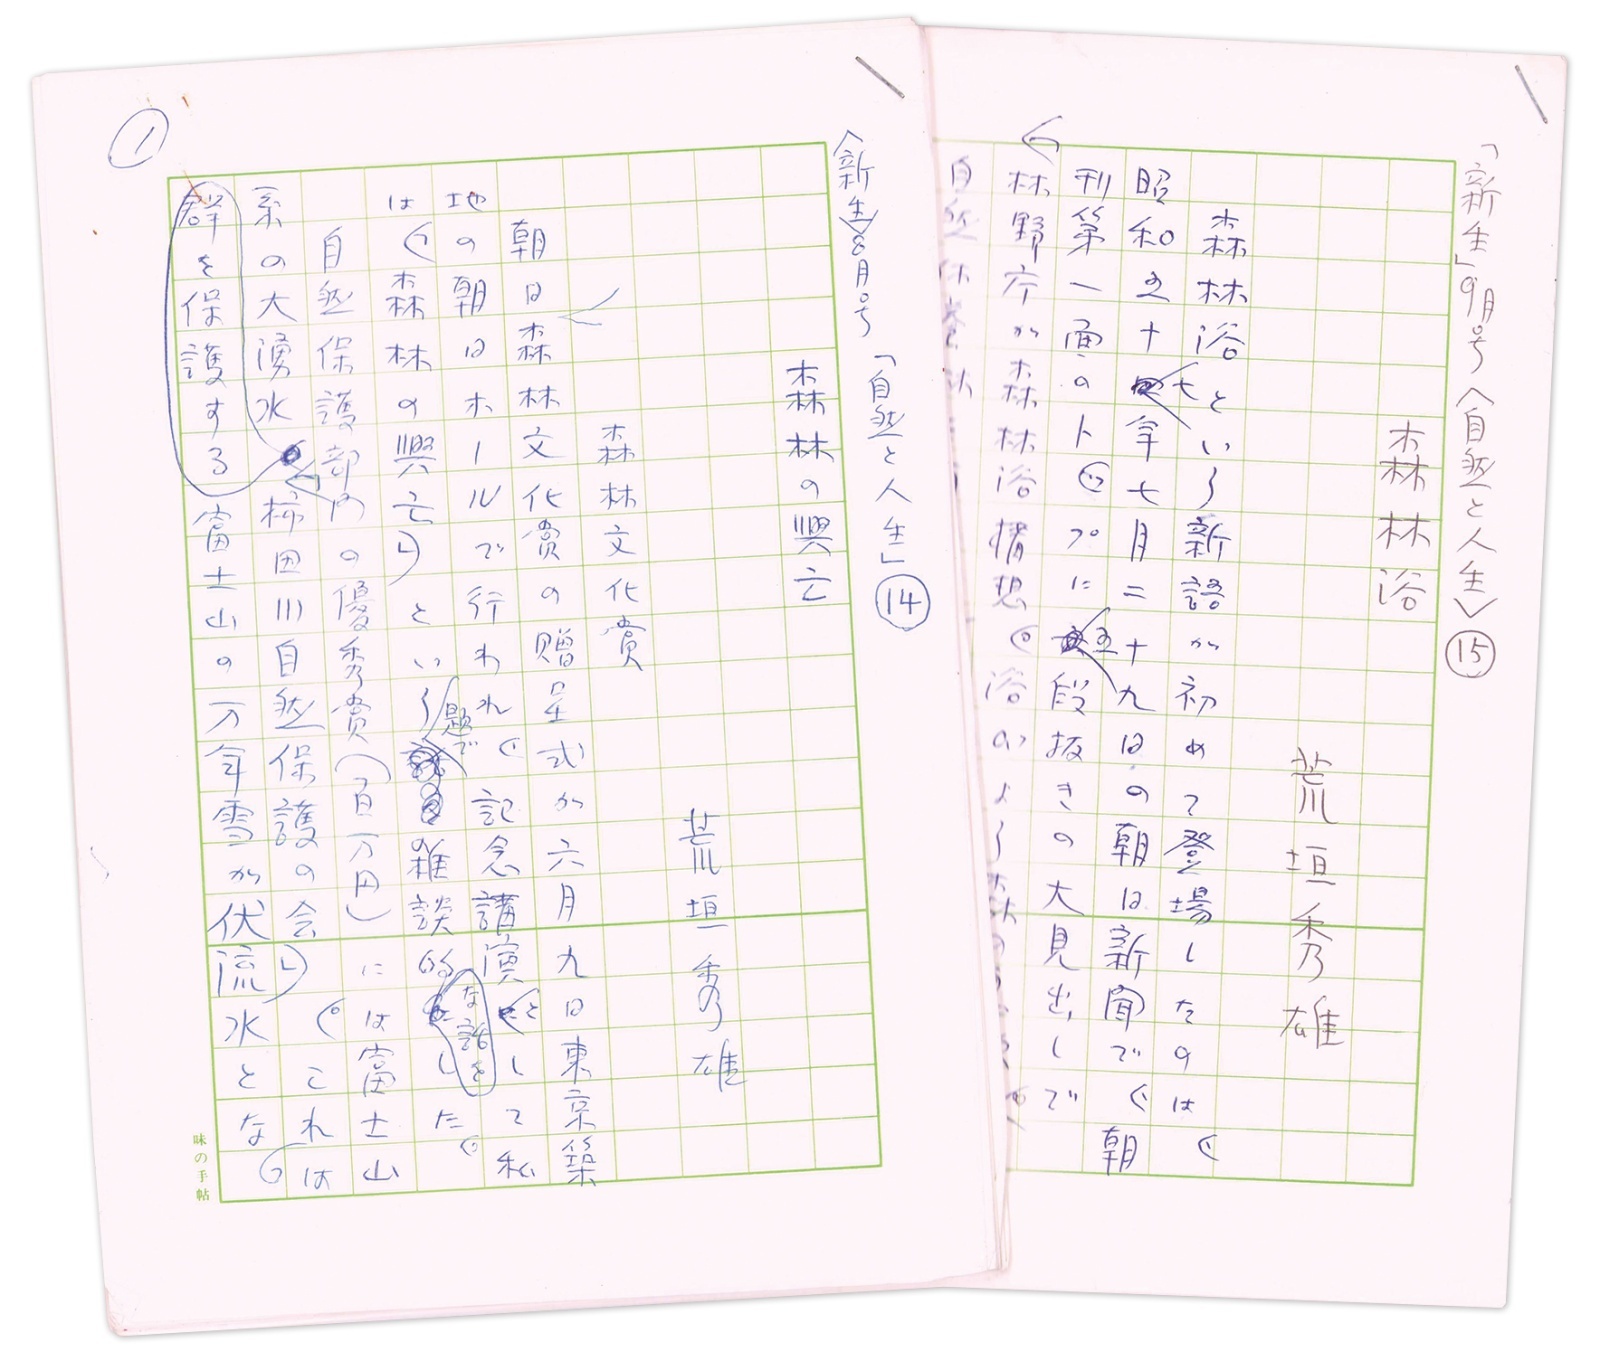 「新生」9月号〈自然と人生〉⑮
森林浴
荒垣秀雄
森林浴という新語が初めて登場したのは、
昭和五十七年七月二十九日の朝日新聞で、朝
刊第一面のトップに五段抜きの大見出しで
「林野庁が森林浴構想。浴のよう
〈新生〉8月号「自然と人生」⑭
森林の興亡
荒垣秀雄
森林文化賞
朝日森林文化賞の贈呈式が六月九日東京築
地の朝日ホールで行われ、記念講演として私
は「森林の興亡」という題で雑談的な話をした。
自然保護部門の優秀賞(百万円)には富士山
系の大湧水柿田川自然保護の会」。これは
群を保護する富士山の万年雪が伏流水とな
①
味の手帖